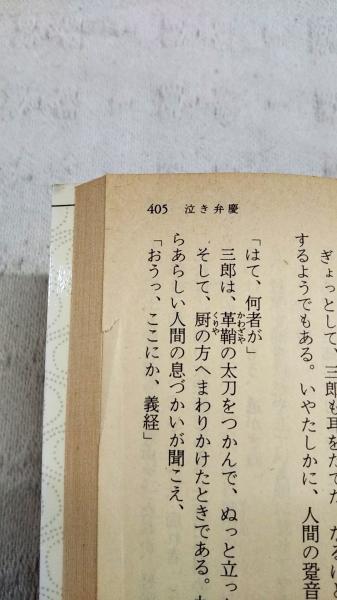 405 泣き弁慶
ぎょっとして、三郎も耳をたてた。なるほど
するようでもある。いやたしかに、人間の跫音
「はて、何者が」
三郎は、革鞘の太刀をつかんで、ぬっと立っ
かわざや
そして、厨の方へまわりかけたときである。
くりや
らあらしい人間の息づかいが聞こえ、
「おうっ、ここにか、義経」